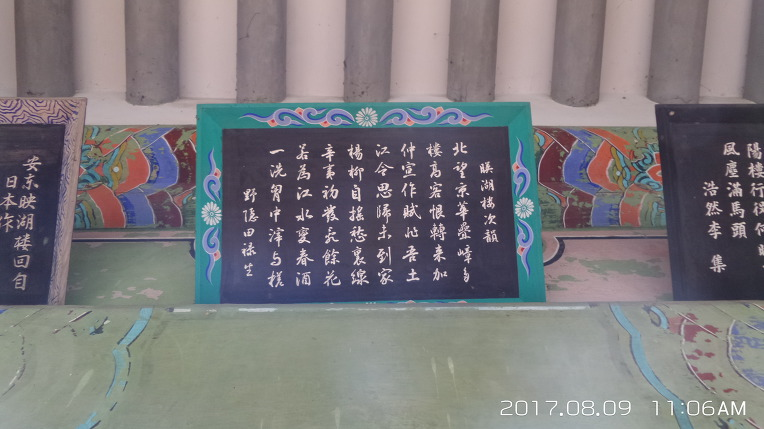 風塵滿馬頭
浩然李集
暎湖樓次韻
北望京華疊嶂多
樓高客恨轉來加
仲宣作賦非吾土
江令思歸未到家
楊柳自搖愁裏線
辛夷初發亂餘花
若爲江水變春酒
一洗胷中滓与槎
野隱田祿生
安東映湖樓回自
日本作
2017.08.09 11:06AM